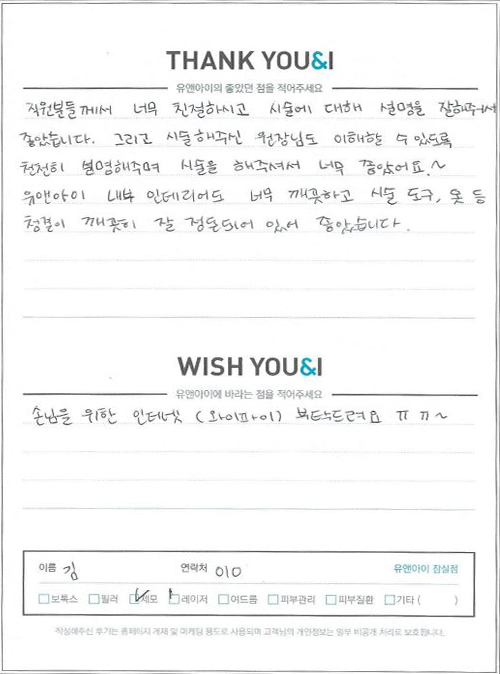 THANK YOU&I
유앤아이의 좋았던 점을 적어주세요
직원분들께서 너무 친절하시고 시술에 대해 설명을 잘해주셔서
좋았습니다. 그리고 시술해주신 원장님도 이해할 수 있도록
천천히 설명해주며 시술을 해주셔서 너무 좋았어요.~
유앤아이 내부 인테리어도 너무 깨끗하고 시술 도구, 옷 등
청결이 깨끗히 잘 정돈되어 있어 좋았습니다.
WISH YOU&I
유앤아이에 바라는 점을 적어주세요
손님을 위한 인터넷 (와이파이) 부탁드려요 ㅠㅠ~
이름 김 연락처 010 유앤아이 잠실점
보톡스 필러 제모 레이저 여드름 피부관리 피부질환 기타 ( )
작성해주신 후기는 홈페이지 게재 및 마케팅 용도로 사용되며 고객님의 개인정보는 일부 비공개 처리로 보호됩니다.